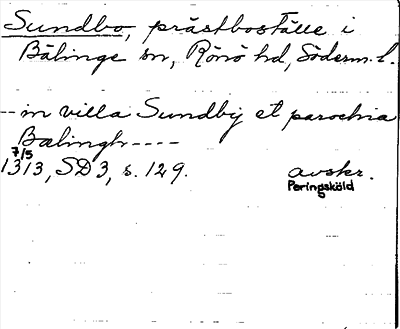 Sundbo, prästboställe i
Bälinge sn, Rönö hd, Söderm. l.
-- in villa Sundby et parochia
Bælingh ----
7/5
1313, SD 3, s. 129. avskr.
Peringsköld